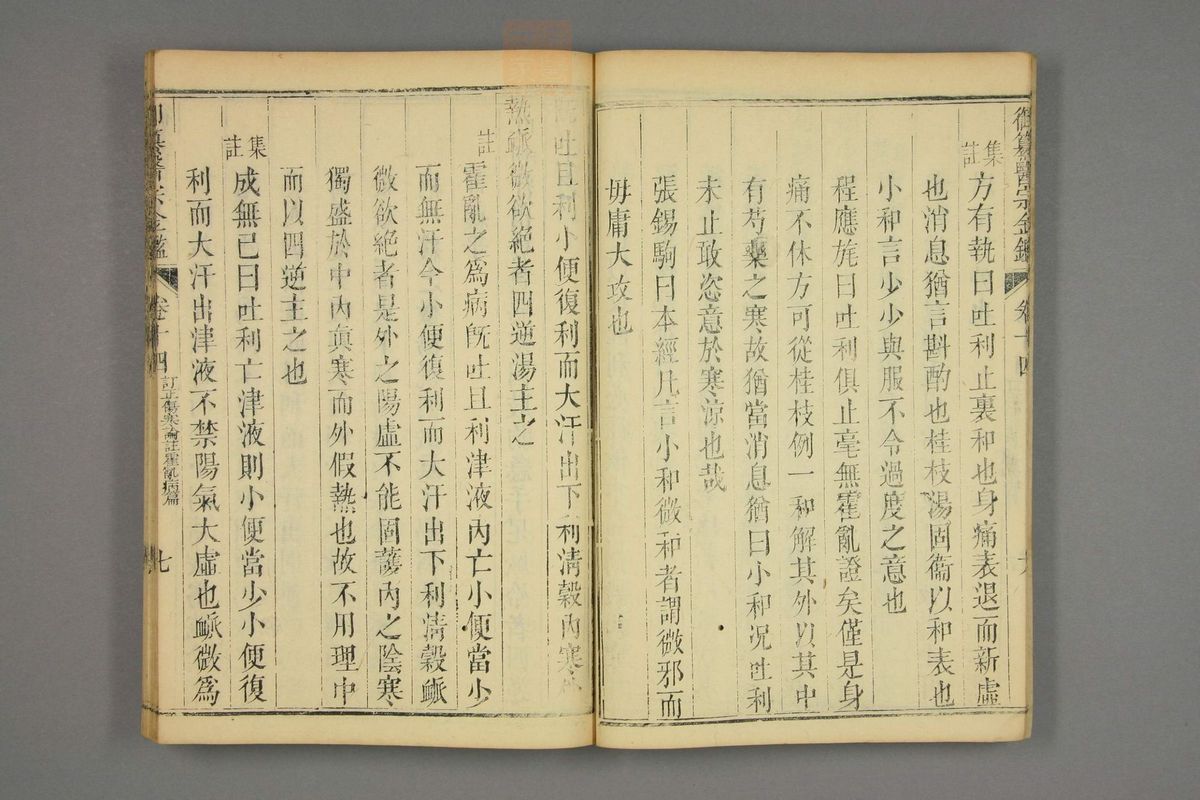 御纂醫宗金鑑 卷十四
集註
方有執曰吐利止裏和也身痛表退而新虛
也消息猶言斟酌也桂枝湯固衞以和表也
小和言少少與服不令過度之意也
程應旄曰吐利俱止毫無霍亂證矣僅是身
痛不休方可從桂枝例一和解其外以其中
有芍藥之寒故猶當消息猶曰小和況吐利
未止敢恣意於寒涼也哉
張錫駒曰本經凡言小和微和者謂微邪而
毋庸大攻也
吐且利小便復利而大汗出下利清穀內寒外
熱脈微欲絕者四逆湯主之
註
霍亂之爲病旣吐且利津液內亡小便當少
而無汗今小便復利而大汗出下利清穀脈
微欲絕者是外之陽虛不能固護內之陰寒
獨盛於中內眞寒而外假熱也故不用理中
而以四逆主之也
集註
成無已曰吐利亡津液則小便當少小便復
利而大汗出津液不禁陽氣大虛也脈微爲
卷十四 訂正傷寒論註霍亂病篇 七